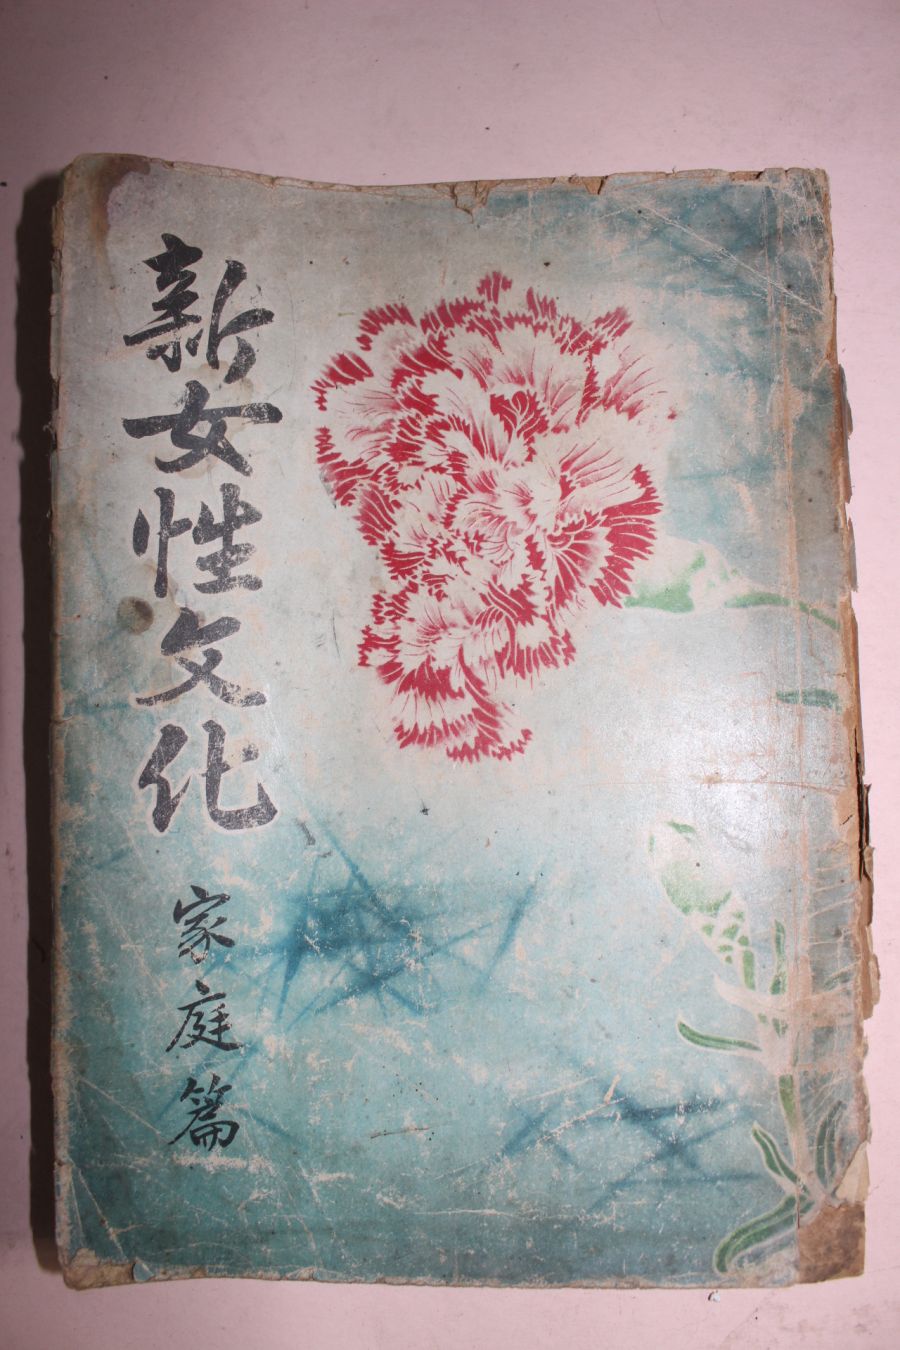 新女性文化
家庭篇